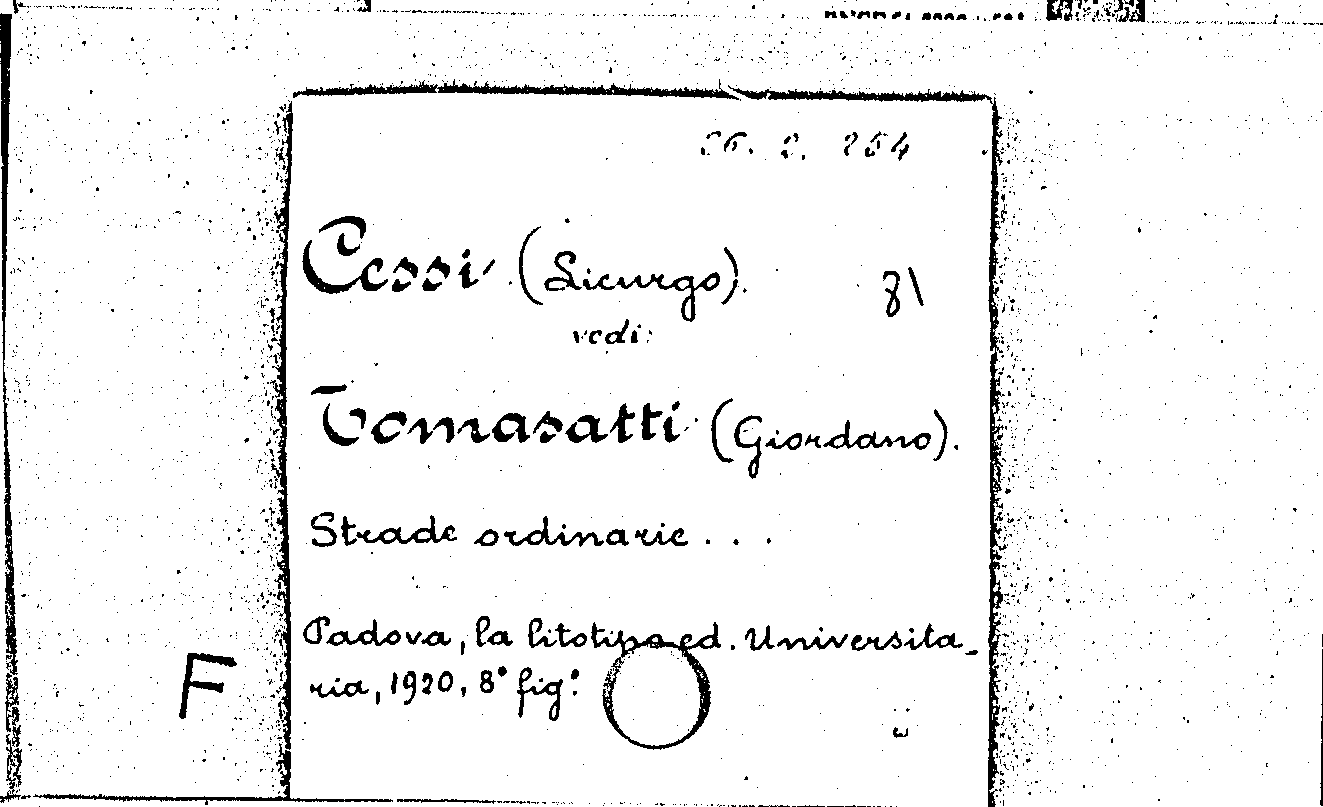 Cessi (Licurgo).
81
vedi:
Tomasatti (Giordano).
Strade ordinarie . . .
Padova, la litotipo ed. Universita_
ria, 1920, 8° fig.°
F